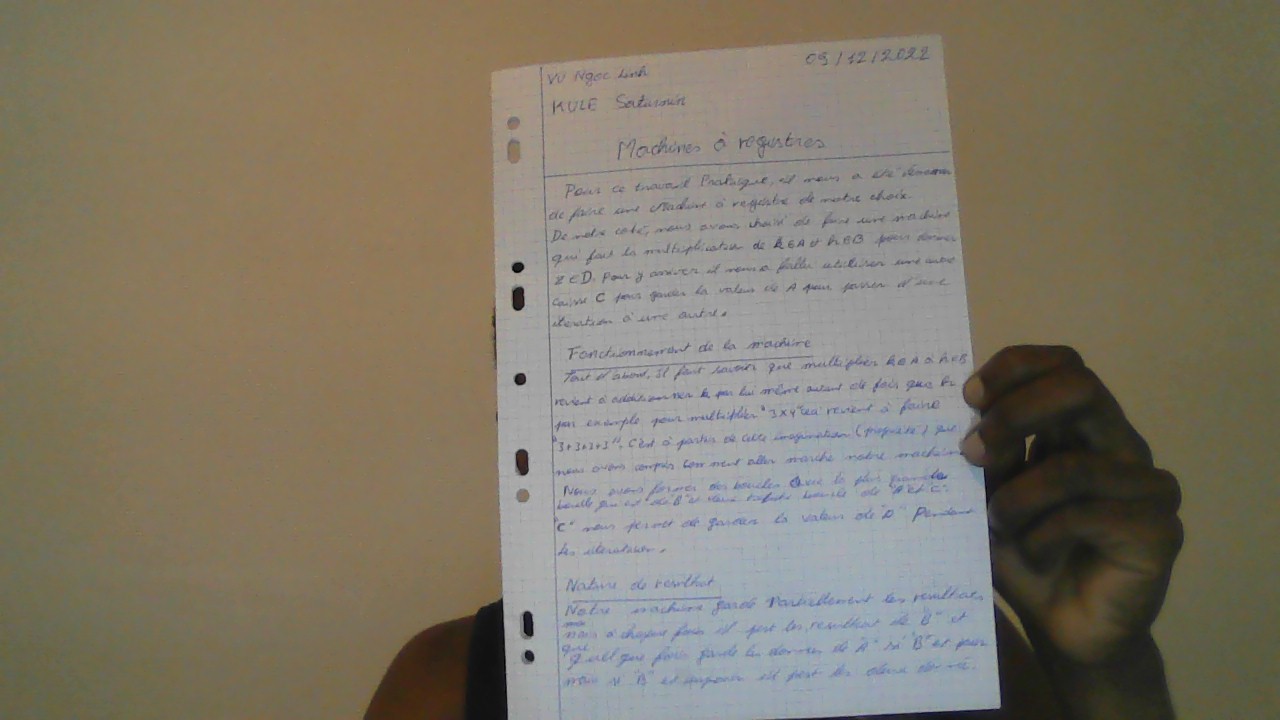 VU Ngoc Linh
09/12/2022
KULE Saturnin
Machines à registres
Pour ce travail Pratique, il nous a été
de faire une Machine à registre de notre choix.
De notre coté, nous avons choisi de faire une machine
qui fait la multiplication de k∈A et h∈B pour donner
z∈D. Pour y arriver il nous a fallu utiliser une autre
caisse C pour garder la valeur de A pour passer d'une
iteration à une autre.
Fonctionnement de la machine
Tout d'abord, il faut savoir que multiplier k∈A à h∈B
revient à additionner k par lui même autant de fois que h
par exemple pour multiplier "3x4" revient à faire
"3+3+3+3". C'est à partir de cette imagination (propriété) que
nous avons compris comment aller marché notre machine
Nous avons former des boucles la plus grande
boucle qui est de "B" et deux boucle de "A et C".
"C" nous permet de garder la valeur de Pendant
les iteration.
Nature de resultat
Notre machine garde Partiellement les resultats
mais à chaque fois il pert les resultat de "B" et
que garde les donnes de "A" si "B" est pair
mais si "B" est il pert les deux